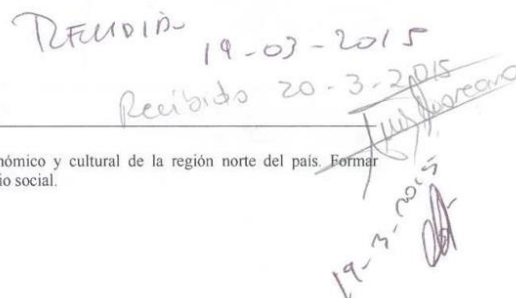 19-03-2015
Recibido 20-3-2015
nómico y cultural de la región norte del país. Formar
io social.
19-3-2015